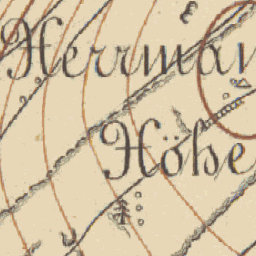 Herrman
Höhe